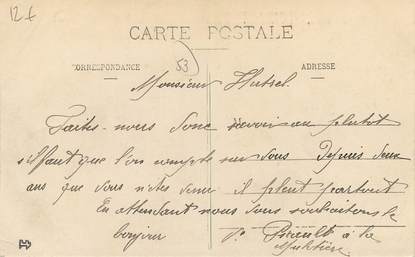 12 f
CARTE POSTALE
53
CORRESPONDANCE
ADRESSE
Monsieur Hutrel.
Faites-nous donc savoir au plutôt
s'il faut que l'on compte sur vous Depuis deux
ans que vous n'êtes venu il pleut partout
En attendant nous vous souhaitons le
bonjour
à la